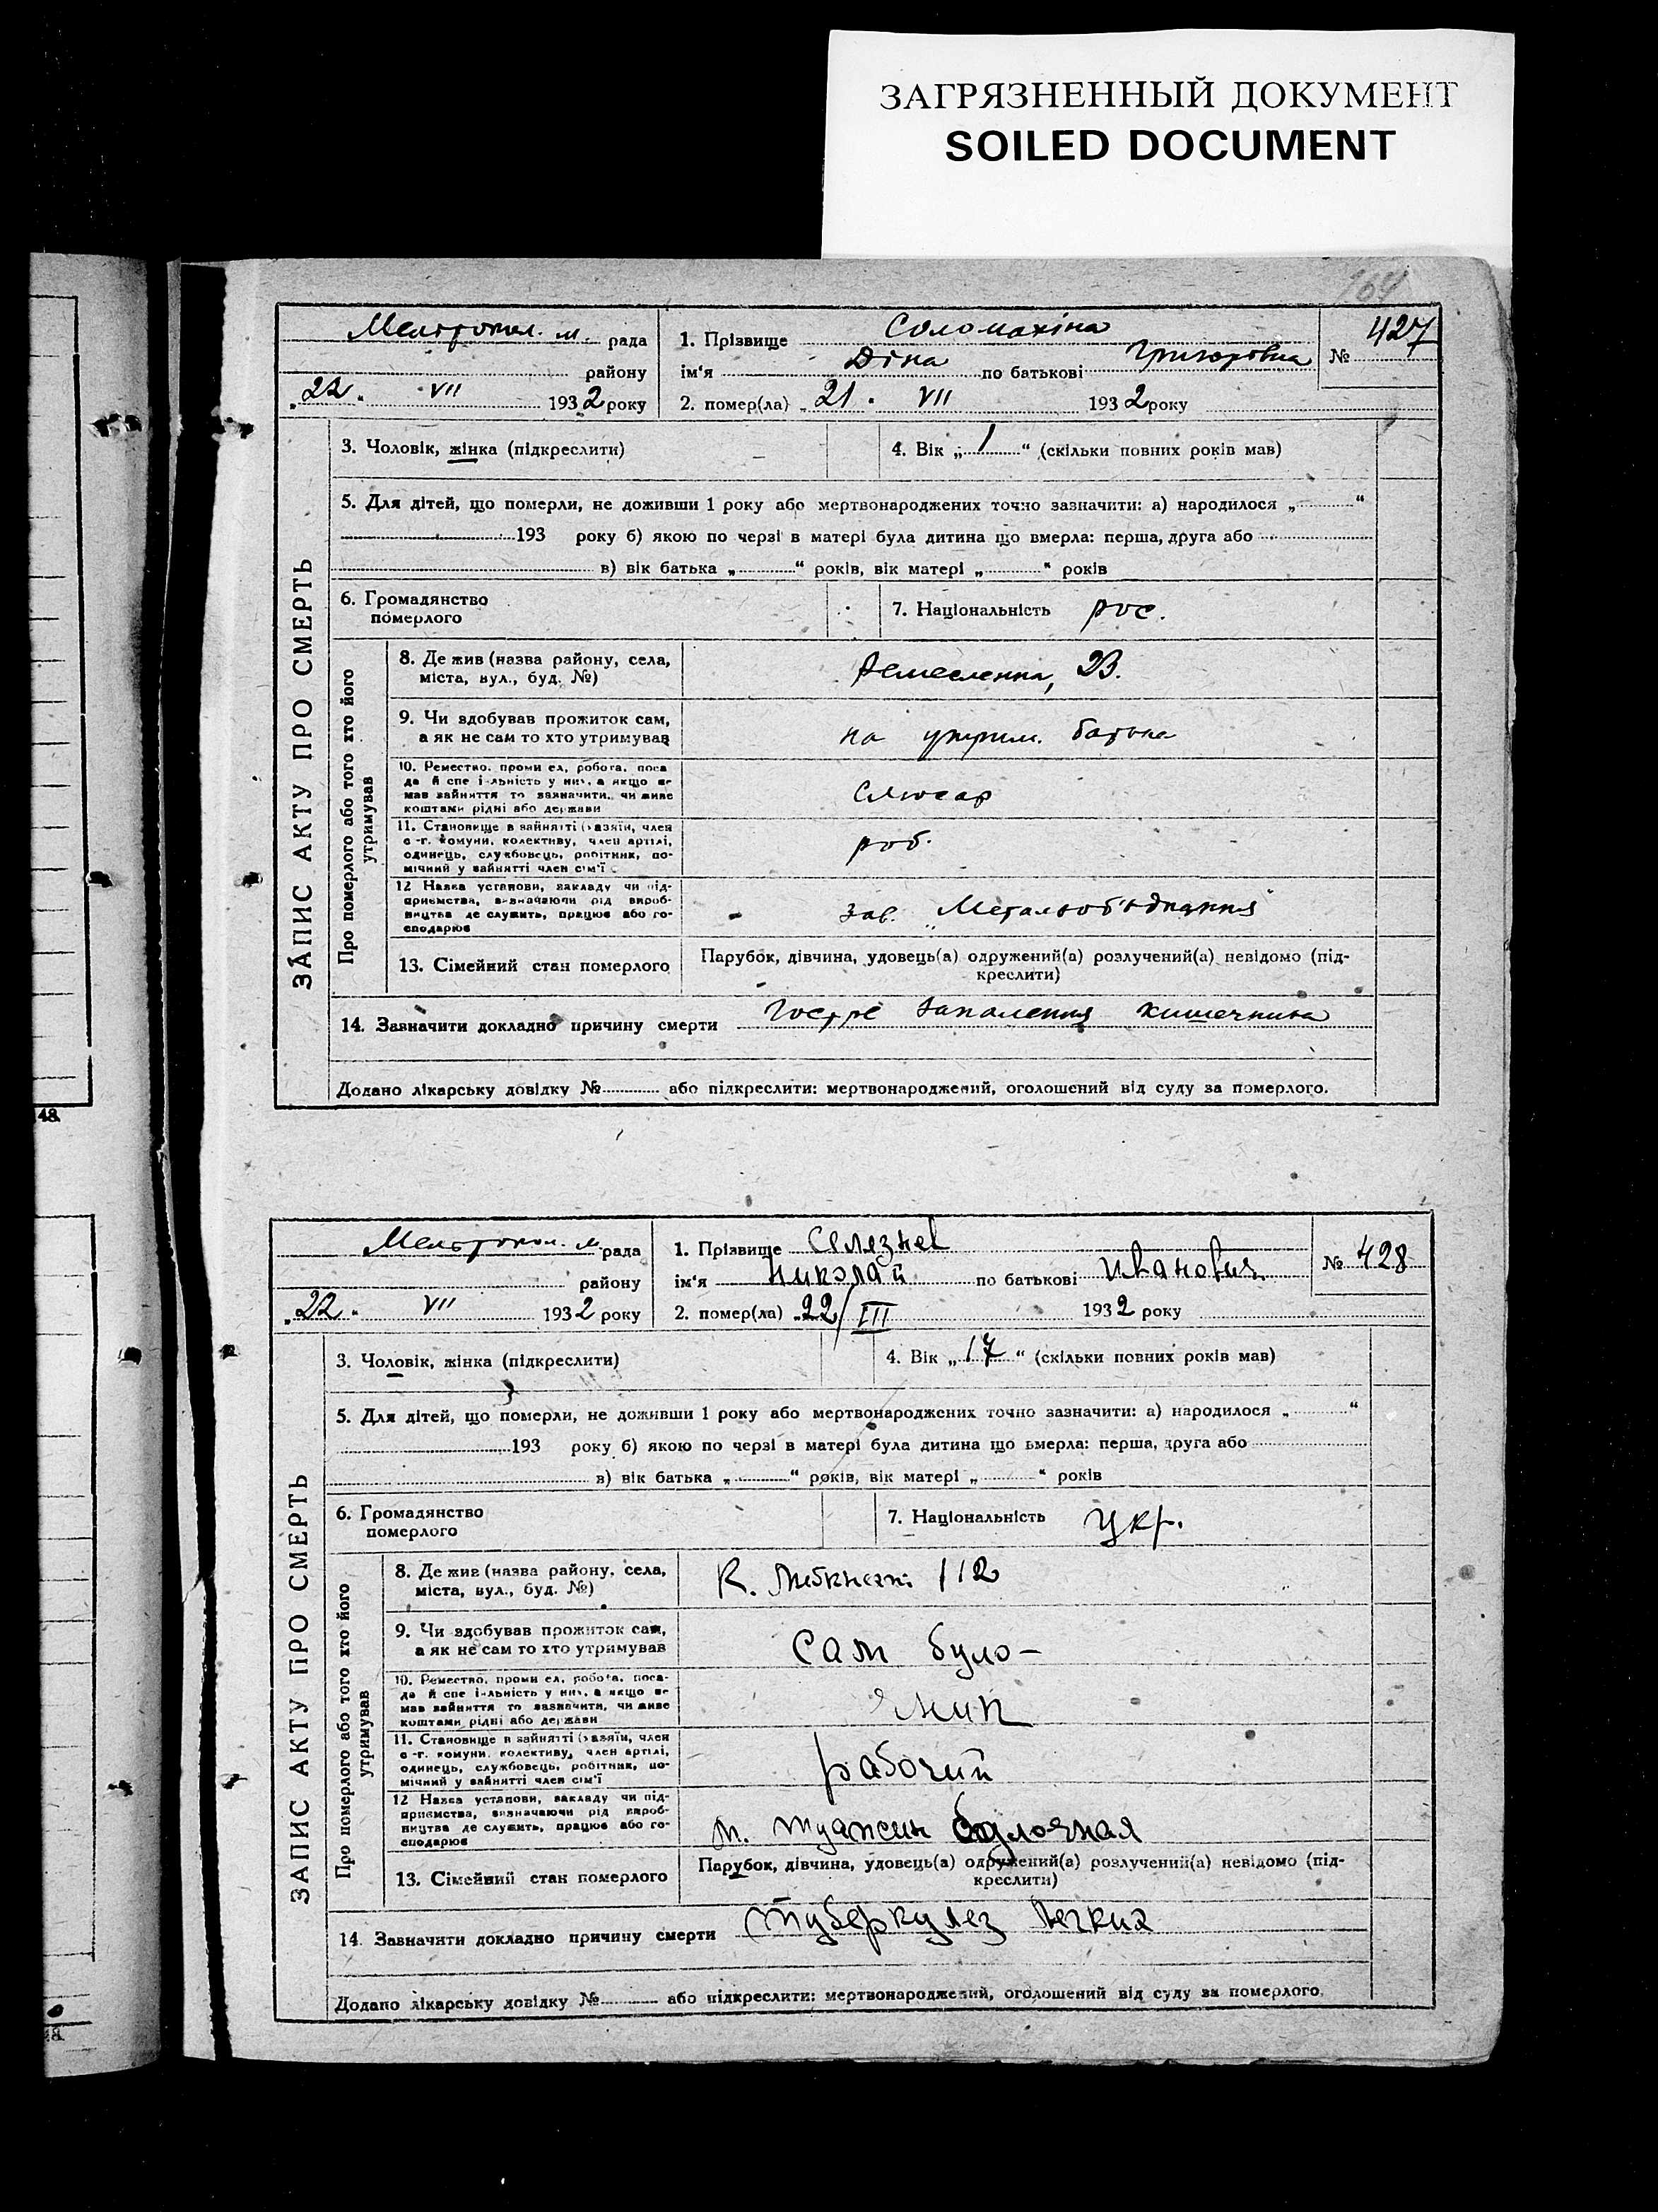 ЗАГРЯЗНЕННЫЙ ДОКУМЕНТ
SOILED DOCUMENT
164
Мелітопол. м. рада
району
„22“ VII 1932 року
1. Прізвище Соломахіна
ім'я Діна по батькові Григорівна
2. помер(ла) „21“ VII 1932 року
№ 427
ЗАПИС АКТУ ПРО СМЕРТЬ
3. Чоловік, жінка (підкреслити)
4. Вік „1“ (скільки повних років мав)
5. Для дітей, що померли, не доживши 1 року або мертвонароджених точно зазначити: а) народилося „ “
193 року б) якою по черзі в матері була дитина що вмерла: перша, друга або
в) вік батька „ “ років, вік матері „ “ років
6. Громадянство
померлого
7. Національність рос.
Про померлого або того хто його
утримував
8. Де жив (назва району, села,
міста, вул., буд. №)
Ремесленна, 23.
9. Чи здобував прожиток сам,
а як не сам то хто утримував
на утрим. батька
10. Ремество, промисел, робота, поса-
да й спеціальність у них, а якщо не
мав зайняття то зазначити, чи живе
коштами рідні або держави
Слюсар
11. Становище в зайнятті (хазяїн, член
с.-г. комуни, колективу, член артілі,
одинець, службовець, робітник, по-
мічний у зайнятті член сім'ї
роб.
12 Назва установи, закладу чи під-
приємства, визначаючи рід вироб-
ництва де служить, працює або го-
сподарює
зав. „Металооб'єднання“
13. Сімейний стан померлого
Парубок, дівчина, удовець(а) одружений(а) розлучений(а) невідомо (під-
креслити)
14. Зазначити докладно причину смерти Гостре запалення кишечника
Додано лікарську довідку № або підкреслити: мертвонароджений, оголошений від суду за померлого.
48.
Мелітопол. м. рада
району
„22“ VII 1932 року
1. Прізвище Селезнев
ім'я Николай по батькові Иванович
2. помер(ла) „22/III 1932 року
№ 428
ЗАПИС АКТУ ПРО СМЕРТЬ
3. Чоловік, жінка (підкреслити)
4. Вік „17“ (скільки повних років мав)
5. Для дітей, що померли, не доживши 1 року або мертвонароджених точно зазначити: а) народилося „ “
193 року б) якою по черзі в матері була дитина що вмерла: перша, друга або
в) вік батька „ “ років, вік матері „ “ років
6. Громадянство
померлого
7. Національність Укр.
Про померлого або того хто його
утримував
8. Де жив (назва району, села,
міста, вул., буд. №)
К. Либкнехт 112
9. Чи здобував прожиток сам,
а як не сам то хто утримував
Сам було-
10. Ремество, промисел, робота, поса-
да й спеціальність у них, а якщо не
мав зайняття то зазначити, чи живе
коштами рідні або держави
11. Становище в зайнятті (хазяїн, член
с.-г. комуни, колективу, член артілі,
одинець, службовець, робітник, по-
мічний у зайнятті член сім'ї
рабочий
12 Назва установи, закладу чи під-
приємства, визначаючи рід вироб-
ництва де служить, працює або го-
сподарює
булочная
13. Сімейний стан померлого
Парубок, дівчина, удовець(а) одружений(а) розлучений(а) невідомо (під-
креслити)
14. Зазначити докладно причину смерти туберкулез легких
Додано лікарську довідку № або підкреслити: мертвонароджений, оголошений від суду за померлого.